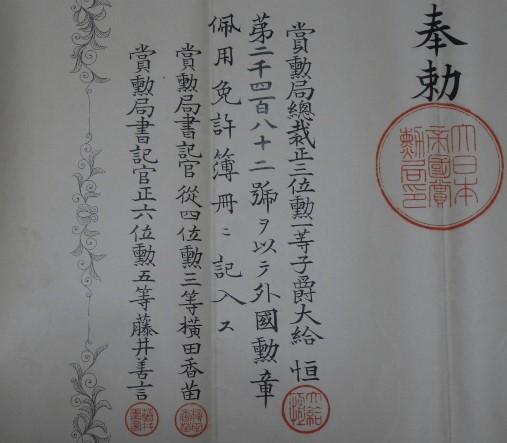 奉勅
大日本帝國賞勲局印
賞勲局總裁正三位勲一等子爵大給恒
第二千四百八十二號ヲ以テ外國勲章
佩用免許簿冊ニ記入ス
賞勲局書記官 從四位勲三等横田香苗
賞勲局書記官正六位勲五等藤井善言